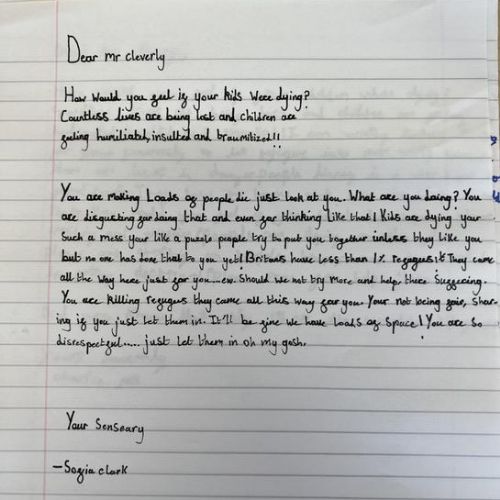 Dear mr cleverly
How would you feel if your kids were dying?
Countless lives are being lost and children are
feeling humiliated, insulted and traumitized!!
You are making Loads of people die just look at you. What are you doing? You
are disgusting for doing that and even for thinking like that! Kids are dying your
Such a mess your like a puzzle people try to put you together unless they like you
but no one has done that to you yet! Britons have less than 1% refugees! They came
all the way here just for you...ew. Should we not try more and help there Suffering.
You are killing refugees they came all this way for you. Your not being fair, Shar-
ing if you just let them in. It'll be fine we have loads of space! You are so
disrespectful..... just let them in oh my gosh.
Your Senseary
-Sofia clark